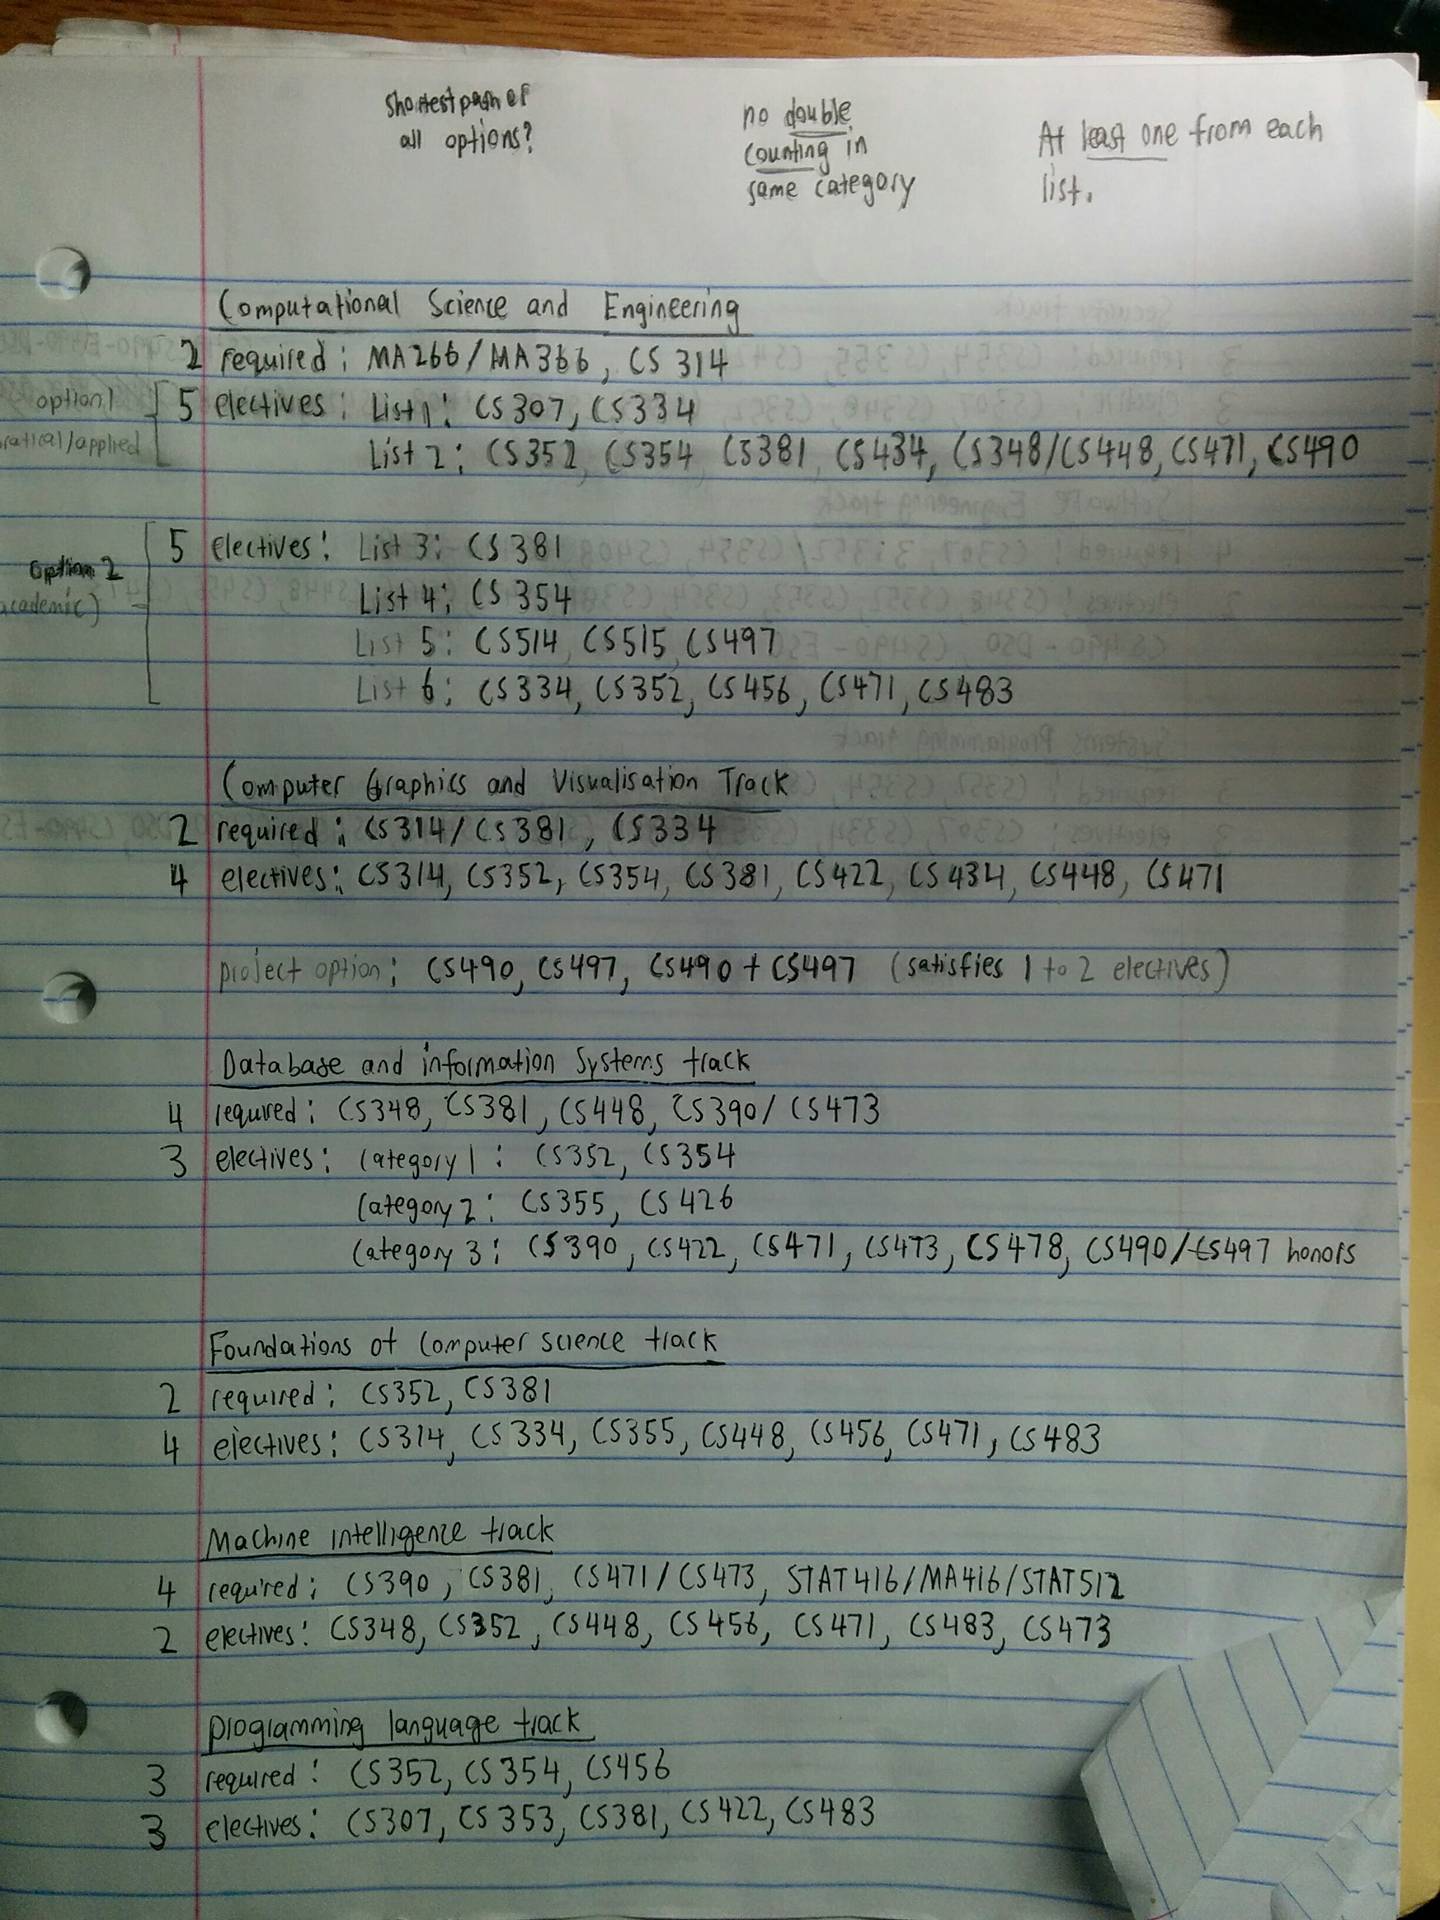 shortest path of
all options?
no double
counting in
same category
At least one from each
list.
Computational Science and Engineering
2 required: MA266/MA366, CS 314
option 1
5 electives: List 1: CS307, CS334
ratical/applied
List 2: CS352, CS354 CS381, CS434, CS348/CS448, CS471, CS490
5 electives: List 3: CS381
option 2
List 4: CS354
academic)
List 5: CS514, CS515, CS497
List 6: CS334, CS352, CS456, CS471, CS483
Computer Graphics and Visualisation Track
2 required: CS314/CS381, CS334
4 electives: CS314, CS352, CS354, CS381, CS422, CS434, CS448, CS471
project option: CS490, CS497, CS490 + CS497 (satisfies 1 to 2 electives)
Database and information Systems track
4 required: CS348, CS381, CS448, CS390/CS473
3 electives: category 1: CS352, CS354
category 2: CS355, CS426
category 3: CS390, CS422, CS471, CS473, CS478, CS490/CS497 honors
Foundations of computer science track
2 required: CS352, CS381
4 electives: CS314, CS334, CS355, CS448, CS456, CS471, CS483
Machine intelligence track
4 required: CS390, CS381, CS471/CS473, STAT416/MA416/STAT512
2 electives: CS348, CS352, CS448, CS456, CS471, CS483, CS473
programming language track
3 required: CS352, CS354, CS456
3 electives: CS307, CS353, CS381, CS422, CS483